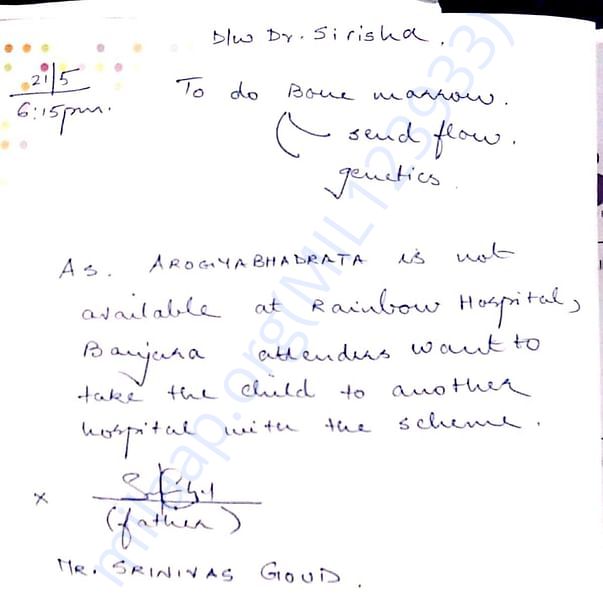 D/W Dr. Sirisha.
21/5
6:15pm.
To do Bone marrow.
send flow.
genetics.
As. AROGYABHADRATA is not
available at Rainbow Hospital,
Banjara attenders want to
take the child to another
hospital with the scheme.
x
(father)
MR. SRINIVAS GOUD.
milaap.org(MIL123933)